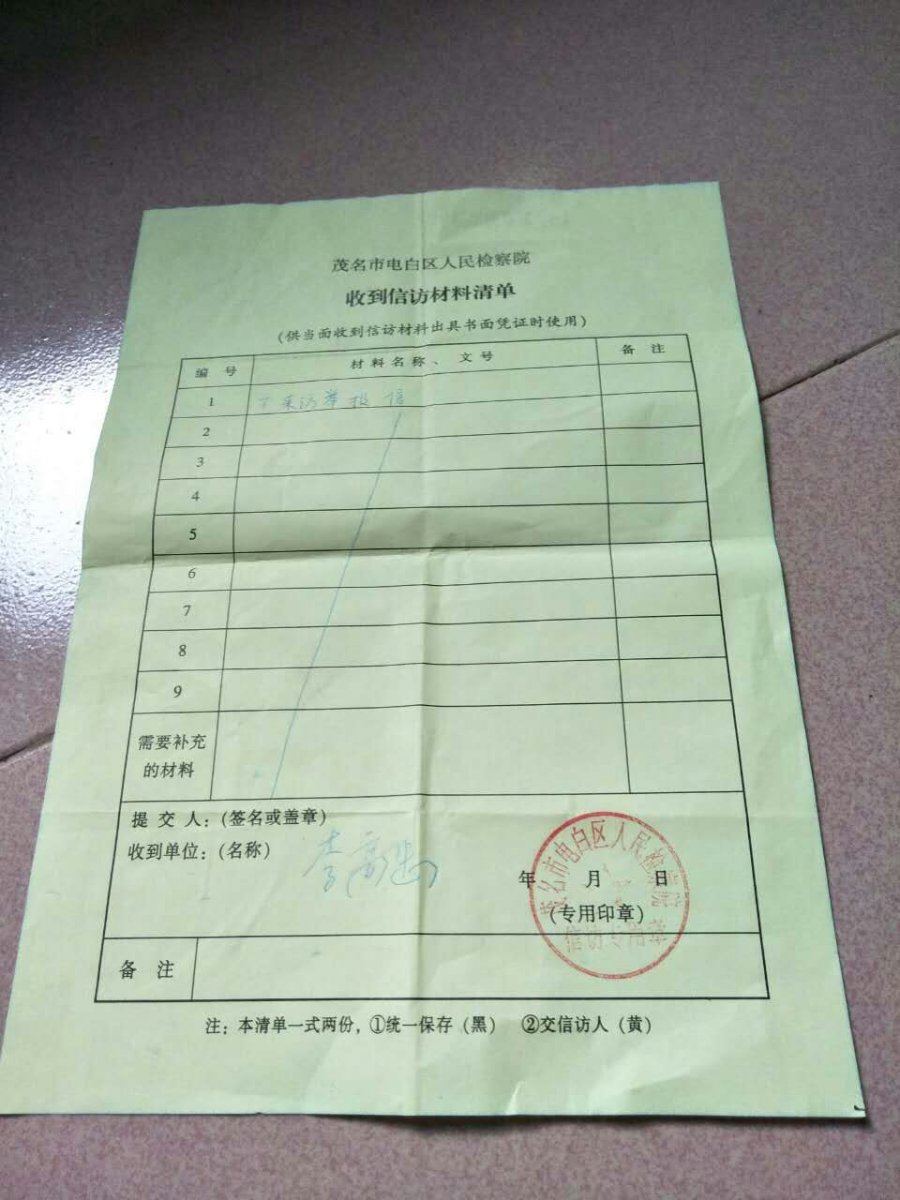 茂名市电白区人民检察院
收到信访材料清单
(供当面收到信访材料出具书面凭证时使用)
编 号 材料名称、文号 备 注
1 举报信
2
3
4
5
6
7
8
9
需要补充
的材料
提 交 人:(签名或盖章)
收到单位:(名称)
年 月 日
(专用印章)
茂名市电白区人民检察院
信访专用章
备 注
注:本清单一式两份,①统一保存(黑) ②交信访人(黄)